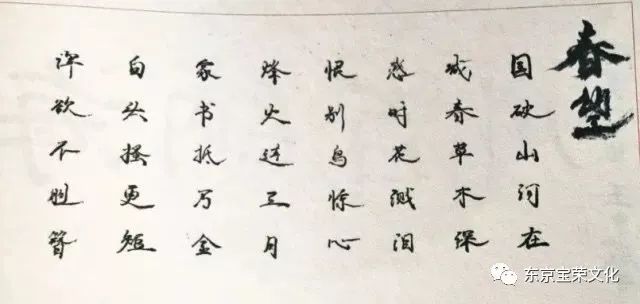 春望
国破山河在
城春草木深
感时花溅泪
恨别鸟惊心
烽火连三月
家书抵万金
白头搔更短
浑欲不胜簪
东京宝荣文化